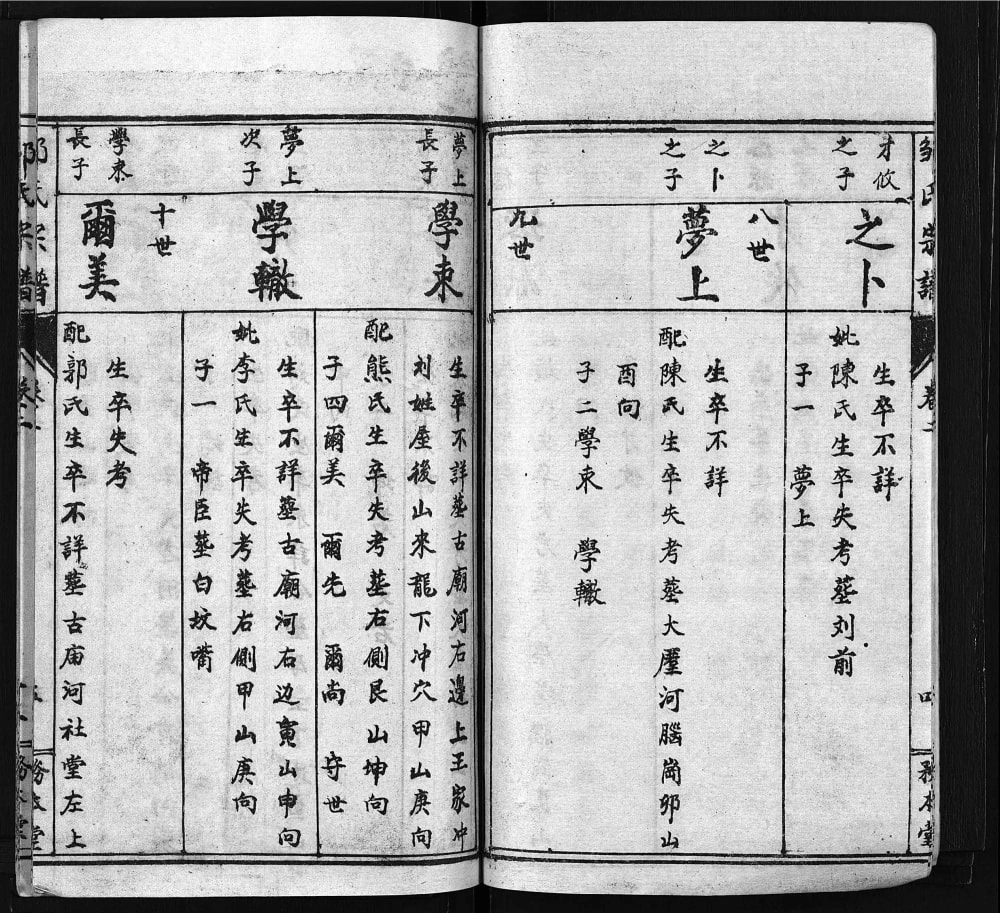 鄒氏宗譜
卷二
四
務本堂
才攸
之子
之卜
生卒不詳
妣陳氏生卒失考葬刘前
子一 夢上
八世
之卜
之子
夢上
生卒不詳
配陳氏生卒失考葬大壥河腦崗卯山
酉向
子二學束 學轍
九世
夢上
長子
學束
生卒不詳葬古廟河右邊上王家冲
刘姓屋後山来龍下冲穴甲山庚向
配熊氏生卒失考葬右側艮山坤向
子四爾美 爾先 爾尚 守世
夢上
次子
學轍
生卒不詳葬古廟河右边寅山申向
妣李氏生卒失考葬右側甲山庚向
子一 帝臣葬白坟嘴
十世
學束
長子
爾美
生卒失考
配郭氏生卒不詳葬古庙河社堂左上
氏宗譜
卷二